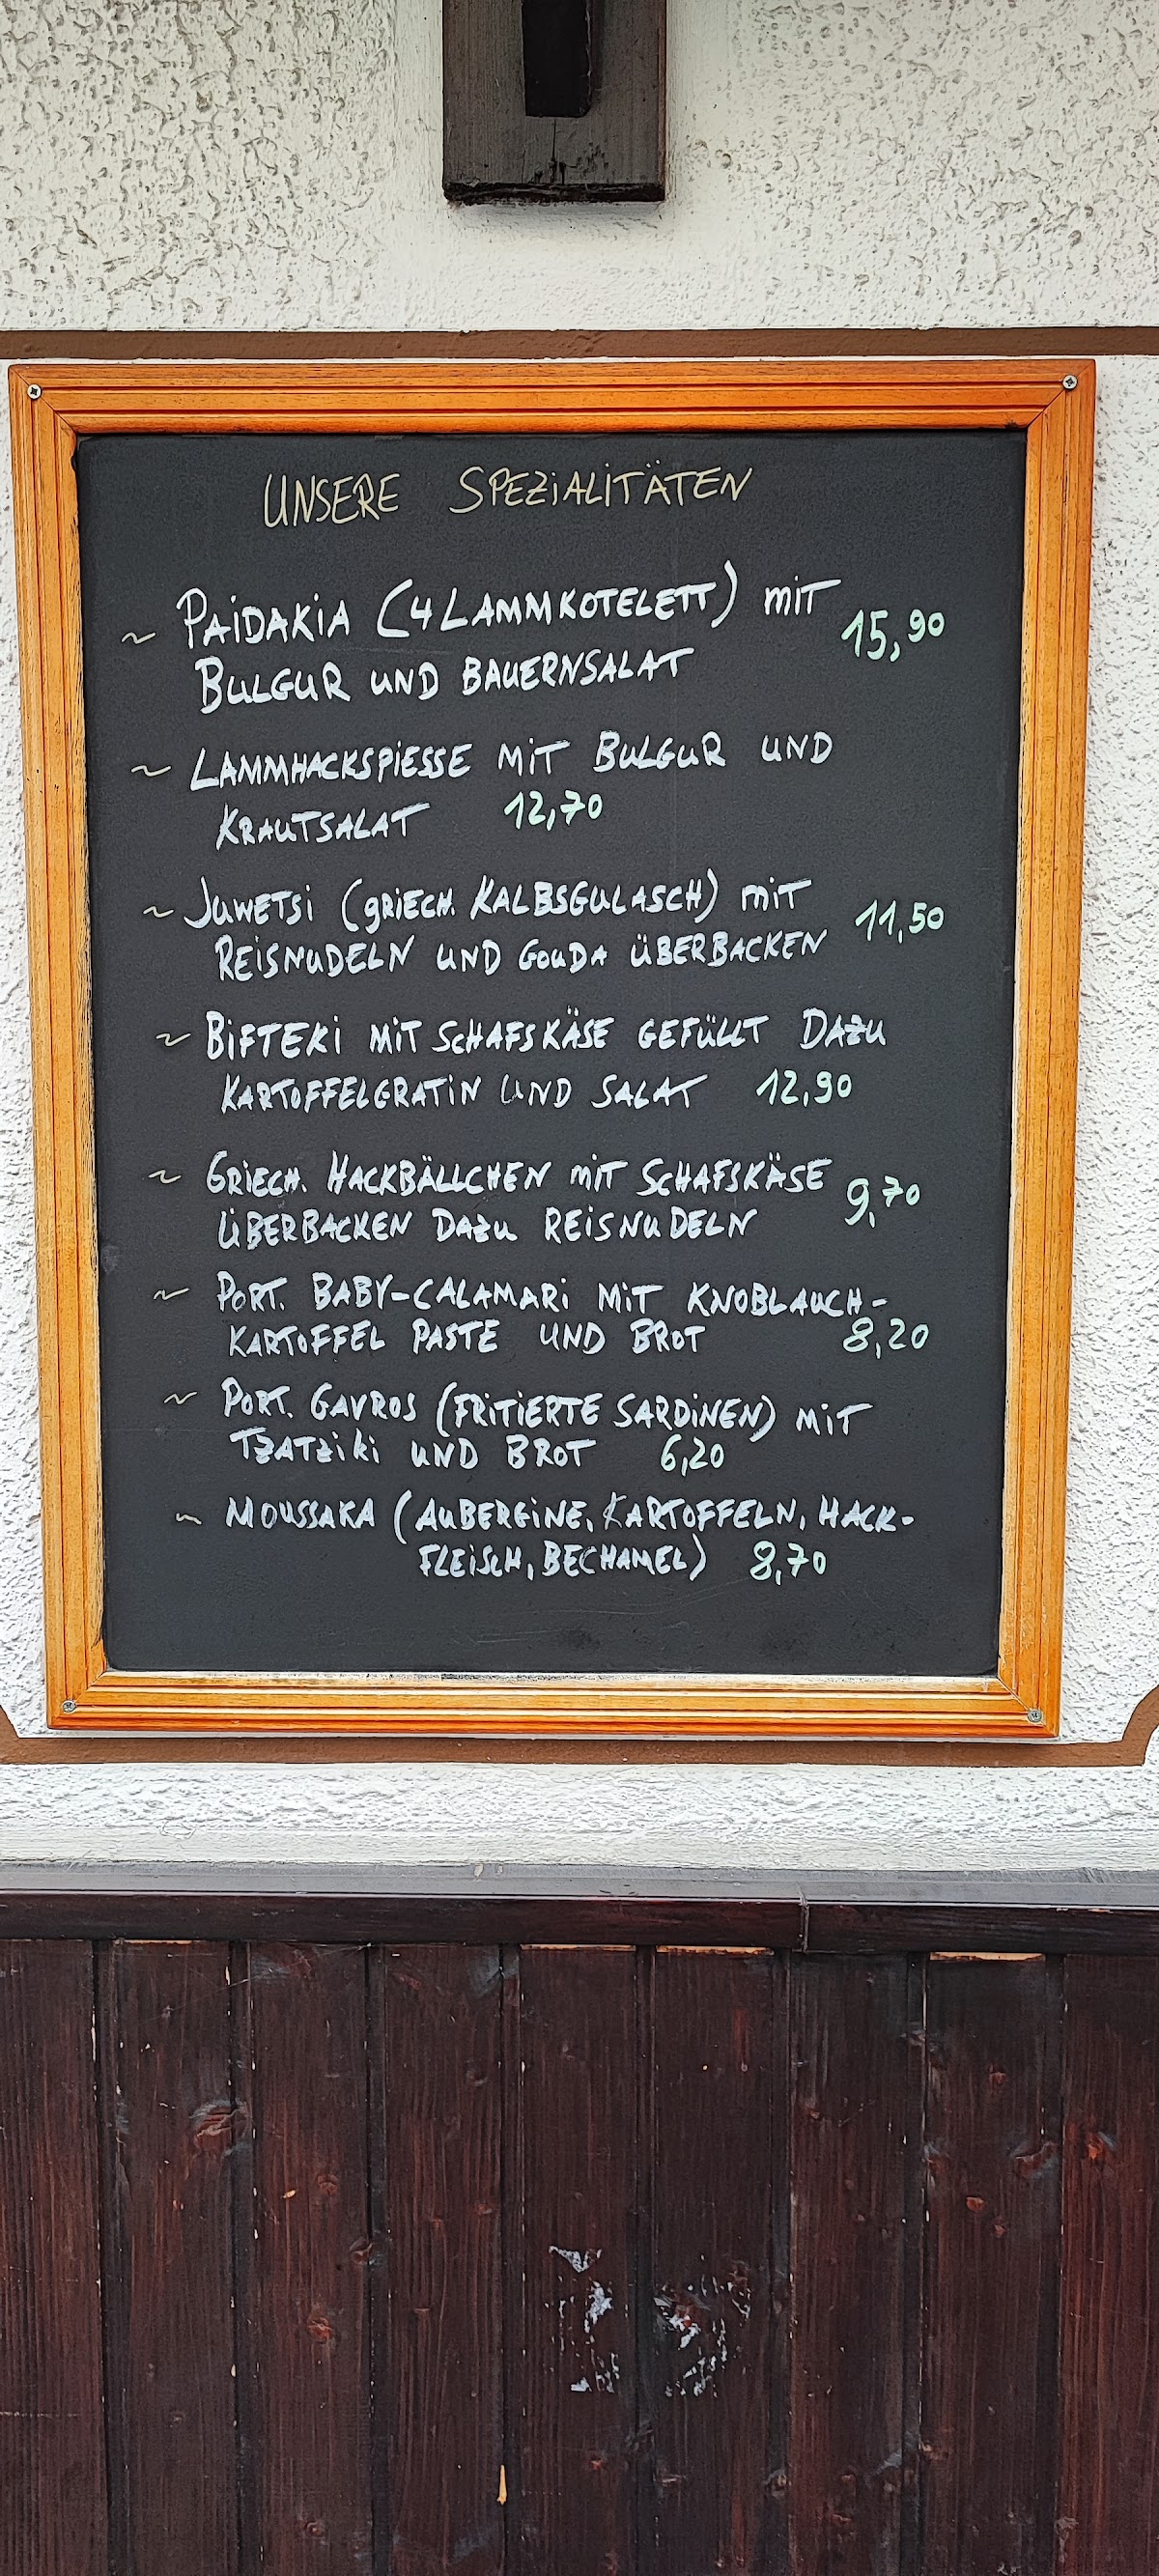 UNSERE SPEZIALITÄTEN
~ PAIDAKIA (4 LAMMKOTELETT) MIT 15,90
BULGUR UND BAUERNSALAT
~ LAMMHACKSPIESSE MIT BULGUR UND
KRAUTSALAT 12,70
~ JUWETSI (GRIECH. KALBSGULASCH) MIT 11,50
REISNUDELN UND GOUDA ÜBERBACKEN
~ BIFTEKI MIT SCHAFSKÄSE GEFÜLLT DAZU
KARTOFFELGRATIN UND SALAT 12,90
~ GRIECH. HACKBÄLLCHEN MIT SCHAFSKÄSE 9,70
ÜBERBACKEN DAZU REISNUDELN
~ PORT. BABY-CALAMARI MIT KNOBLAUCH-
KARTOFFEL PASTE UND BROT 8,20
~ PORT. GAVROS (FRITIERTE SARDINEN) MIT
TZATZIKI UND BROT 6,20
~ MOUSSAKA (AUBERGINE, KARTOFFELN, HACK-
FLEISCH, BECHAMEL) 8,70